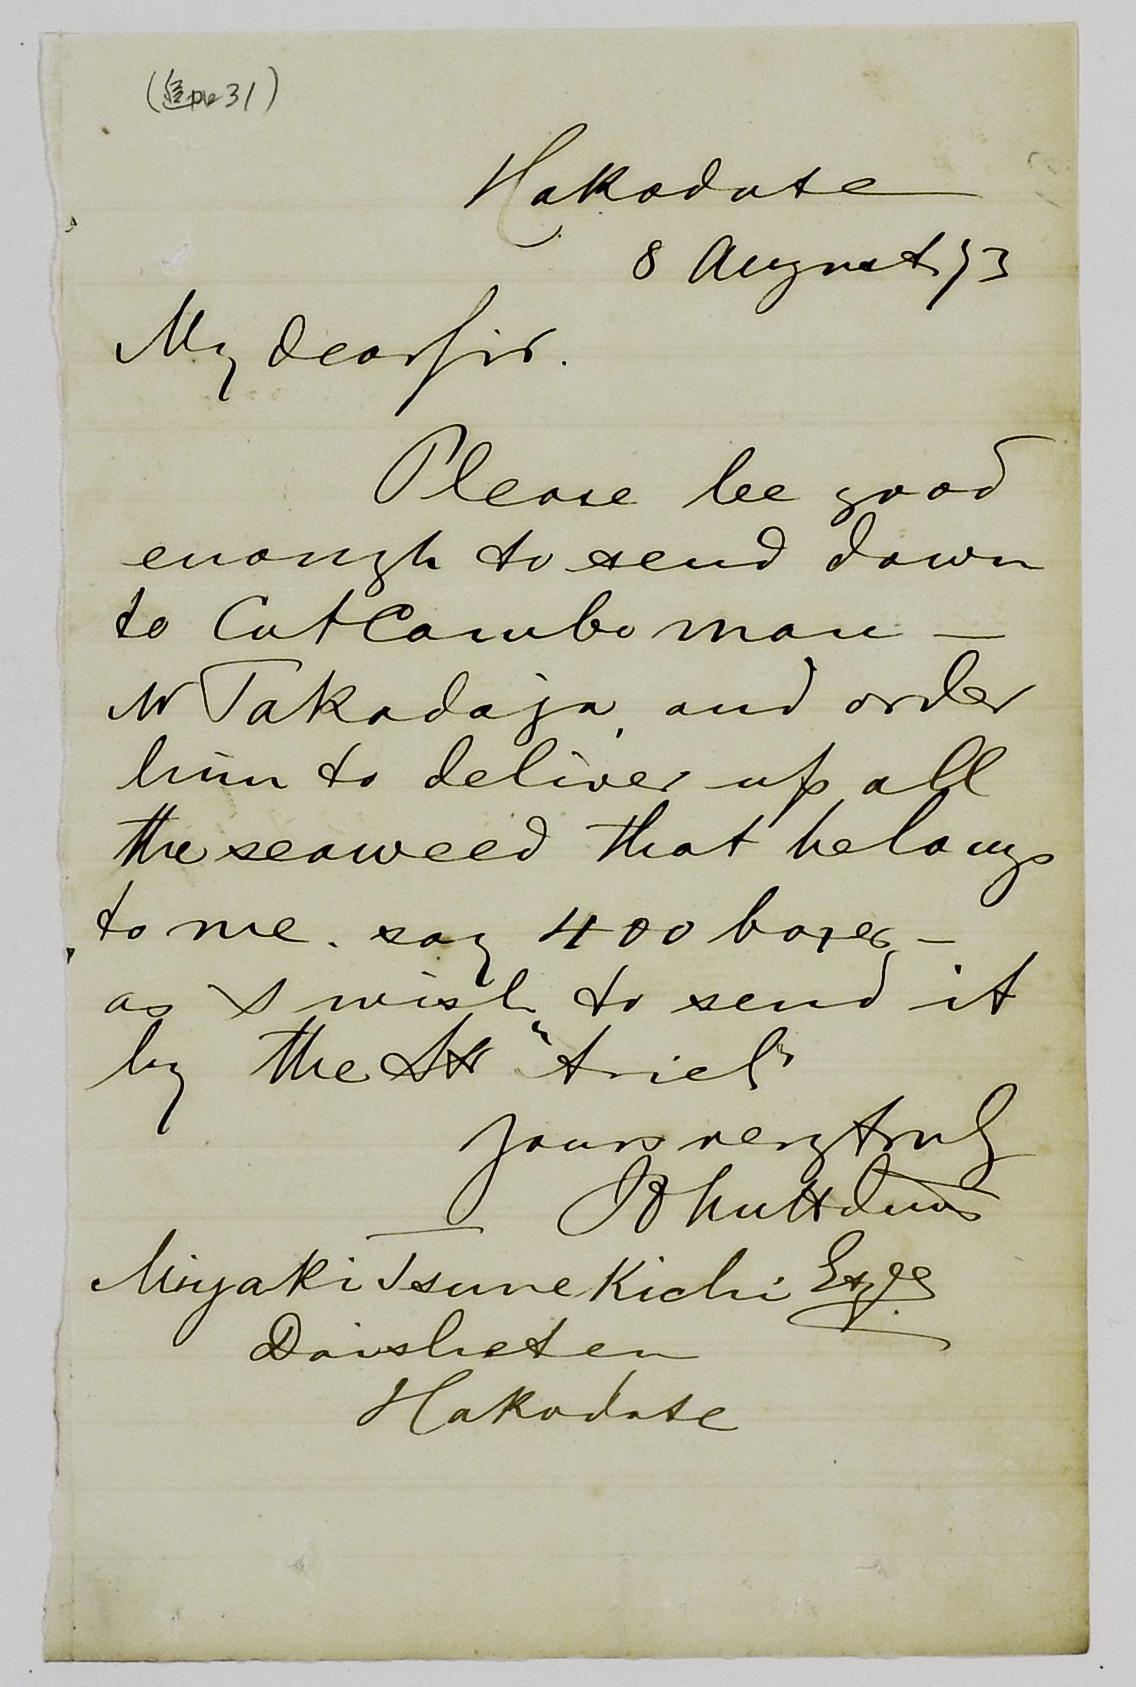 Hakodate
8 August 73
My dear Sir.
Please be good
enough to send down
to Cut Combo man —
Mr Takadaja, and order
him to deliver up all
the seaweed that belongs
to me. say 400 boxes —
as I wish to send it
by the Str "Ariel"
Yours very truly
Miyaki Tsune Kichi Esqre
Daisheten
Hakodate